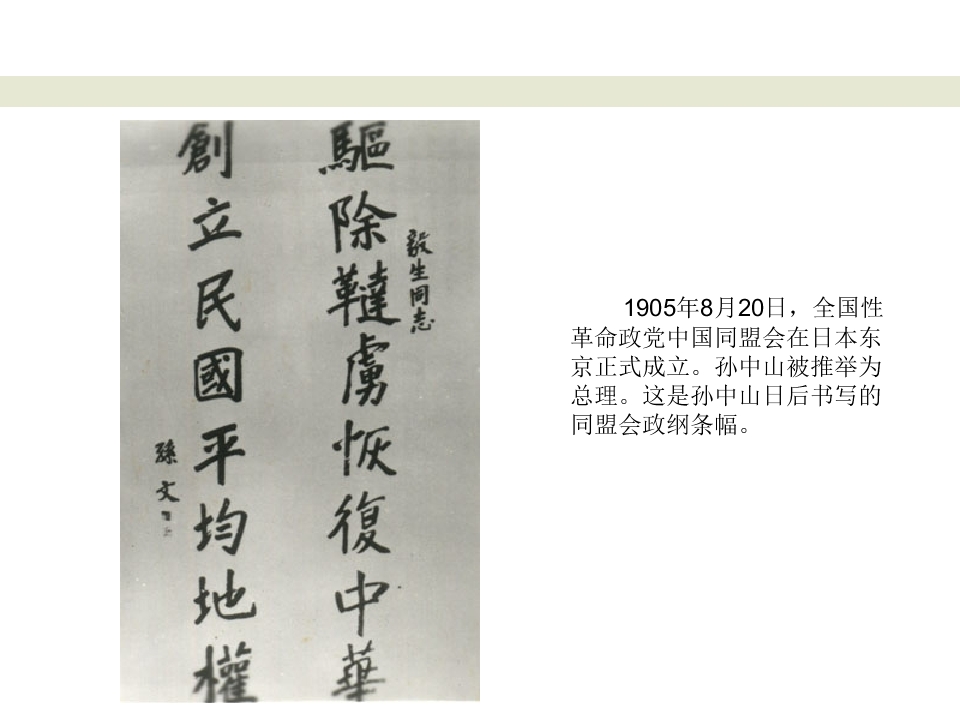 毅生同志
驅除韃虜恢復中華
創立民國平均地權
孫文
1905年8月20日，全国性
革命政党中国同盟会在日本东
京正式成立。孙中山被推举为
总理。这是孙中山日后书写的
同盟会政纲条幅。